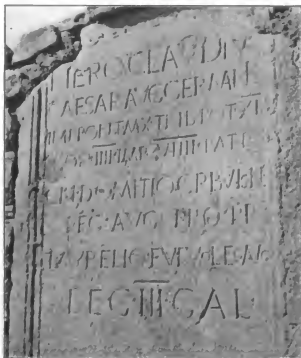 NERO CLAVDIV
CAESAR AVG GERMANI
IMP PONT MAX TRIB POT XI
COS IIII IMP VIIII PAT
CN DOMITIO CORBVLO
LEG AVG PRO PR
T AVRELIO FVLVO LEG AVG
LEG III GAL